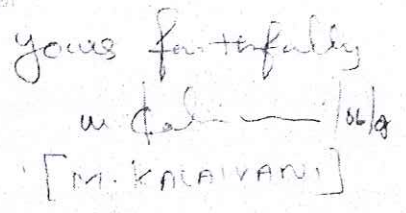 yours faithfully
[M. KALAIVANI]